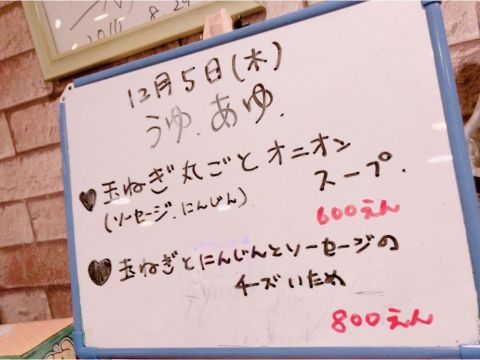 2016 8.29
12月5日(木)
うゆ.あゆ.
♥玉ねぎ丸ごとオニオン
スープ.
(ソーセージ.にんじん)
600えん
♥玉ねぎとにんじんとソーセージの
チーズいため
800えん